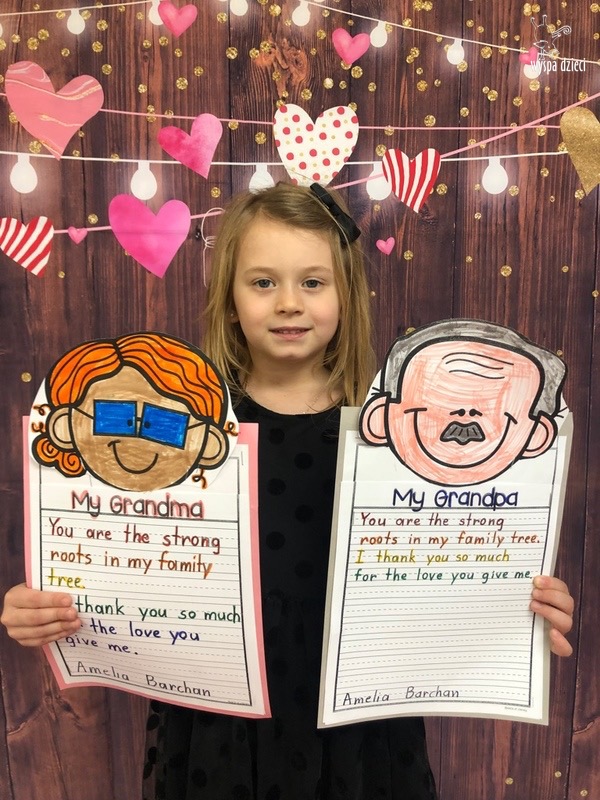 wyspa dzieci
My Grandma
You are the strong
roots in my family
tree.
thank you so much
the love you
give me.
Amelia Barchan
My Grandpa
You are the strong
roots in my family tree.
I thank you so much
for the love you give me.
Amelia Barchan